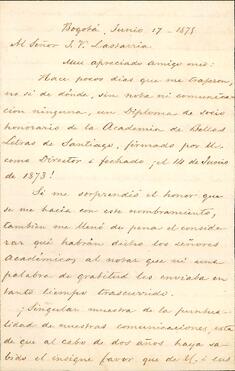 Bogotá, Junio 17 - 1875
Al Señor J. V. Lastarria
Muy apreciado amigo mio:
Hace pocos dias que me trajeron,
no sé de dónde, sin nota ni comunica-
cion ninguna, un Diploma de socio
honorario de la Academia de Bellas
Letras de Santiago, firmado por U.
como Director i fechado ¡el 14 de Junio
de 1873!
Si me sorprendió el honor que
se me hacia con este nombramiento,
tambien me llenó de pena el conside-
rar qué habrán dicho los señores
Académicos al notar que ni una
palabra de gratitud les enviaba en
tanto tiempo trascurrido.
¡Singular muestra de la puntua-
lidad de nuestras comunicaciones, esta
de que al cabo de dos años haya sa-
bido el insigne favor que de U. i sus